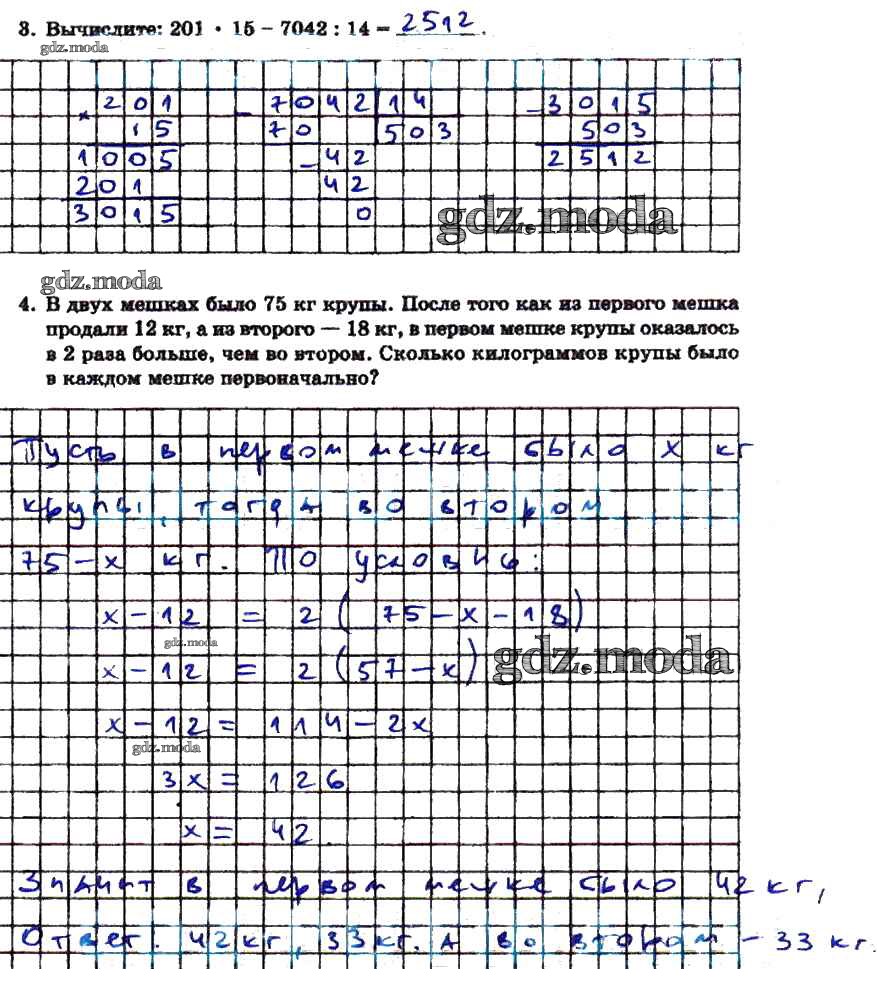 3. Вычислите: 201 · 15 – 7042 : 14 = 2512.
gdz.moda
× 201 – 7042 14 – 3015
15 70 503 503
1005 – 42 2512
201 42
3015 0
gdz.moda
gdz.moda
4. В двух мешках было 75 кг крупы. После того как из первого мешка
продали 12 кг, а из второго — 18 кг, в первом мешке крупы оказалось
в 2 раза больше, чем во втором. Сколько килограммов крупы было
в каждом мешке первоначально?
Пусть в первом мешке было x кг
крупы, тогда во втором
75 – x кг. По условию:
x – 12 = 2 (75 – x – 18)
gdz.moda
x – 12 = 2 (57 – x)
gdz.moda
x – 12 = 114 – 2x
gdz.moda
3x = 126
x = 42
Значит в первом мешке было 42 кг,
Ответ. 42 кг, 33 кг. а во втором – 33 кг.